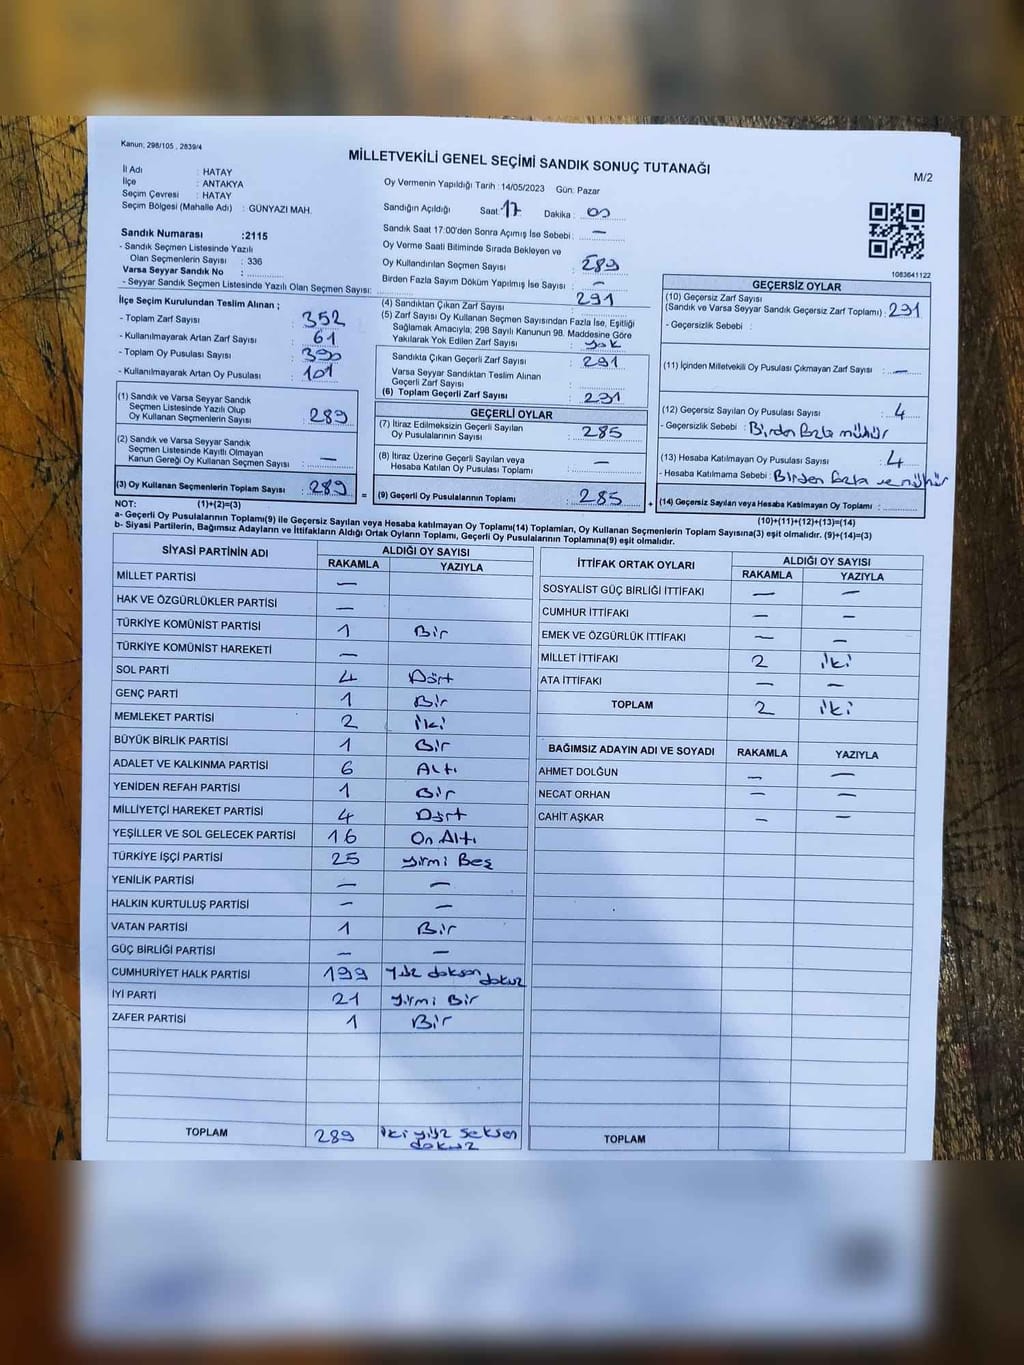 Kanun, 298/105 , 2839/4
MİLLETVEKİLİ GENEL SEÇİMİ SANDIK SONUÇ TUTANAĞI
M/2
İl Adı : HATAY
İlçe : ANTAKYA
Seçim Çevresi : HATAY
Seçim Bölgesi (Mahalle Adı) : GÜNYAZI MAH.
Oy Vermenin Yapıldığı Tarih : 14/05/2023 Gün: Pazar
Sandığın Açıldığı Saat: 17 Dakika : 00
Sandık Saat 17:00'den Sonra Açımış İse Sebebi : —
Oy Verme Saati Bitiminde Sırada Bekleyen ve
Oy Kullandırılan Seçmen Sayısı : 289
Birden Fazla Sayım Döküm Yapılmış İse Sayısı : —
Sandık Numarası :2115
- Sandık Seçmen Listesinde Yazılı
Olan Seçmenlerin Sayısı : 336
Varsa Seyyar Sandık No :
- Seyyar Sandık Seçmen Listesinde Yazılı Olan Seçmen Sayısı:
1083641122
İlçe Seçim Kurulundan Teslim Alınan ;
- Toplam Zarf Sayısı : 352
- Kullanılmayarak Artan Zarf Sayısı : 61
- Toplam Oy Pusulası Sayısı : 390
- Kullanılmayarak Artan Oy Pusulası : 101
(1) Sandık ve Varsa Seyyar Sandık
Seçmen Listesinde Yazılı Olup
Oy Kullanan Seçmenlerin Sayısı : 289
(2) Sandık ve Varsa Seyyar Sandık
Seçmen Listesinde Kayıtlı Olmayan
Kanun Gereği Oy Kullanan Seçmen Sayısı : —
(3) Oy Kullanan Seçmenlerin Toplam Sayısı : 289
(4) Sandıktan Çıkan Zarf Sayısı : 291
(5) Zarf Sayısı Oy Kullanan Seçmen Sayısından Fazla İse, Eşitliği
Sağlamak Amacıyla; 298 Sayılı Kanunun 98. Maddesine Göre
Yakılarak Yok Edilen Zarf Sayısı : yok
Sandıkta Çıkan Geçerli Zarf Sayısı : 291
Varsa Seyyar Sandıktan Teslim Alınan
Geçerli Zarf Sayısı :
(6) Toplam Geçerli Zarf Sayısı : 291
GEÇERLİ OYLAR
(7) İtiraz Edilmeksizin Geçerli Sayılan
Oy Pusulalarının Sayısı : 285
(8) İtiraz Üzerine Geçerli Sayılan veya
Hesaba Katılan Oy Pusulası Toplamı : —
= (9) Geçerli Oy Pusulalarının Toplamı : 285 +
GEÇERSİZ OYLAR
(10) Geçersiz Zarf Sayısı
(Sandık ve Varsa Seyyar Sandık Geçersiz Zarf Toplamı) : 291
- Geçersizlik Sebebi :
(11) İçinden Milletvekili Oy Pusulası Çıkmayan Zarf Sayısı : —
(12) Geçersiz Sayılan Oy Pusulası Sayısı : 4
- Geçersizlik Sebebi : Birden fazla mühür
(13) Hesaba Katılmayan Oy Pusulası Sayısı : 4
- Hesaba Katılmama Sebebi : Birden fazla ve mühür
(14) Geçersiz Sayılan veya Hesaba Katılmayan Oy Pusulası Toplamı :
NOT: (1)+(2)=(3) (10)+(11)+(12)+(13)=(14)
a- Geçerli Oy Pusulalarının Toplamı(9) ile Geçersiz Sayılan veya Hesaba katılmayan Oy Toplamı(14) Toplamları, Oy Kullanan Seçmenlerin Toplam Sayısına(3) eşit olmalıdır. (9)+(14)=(3)
b- Siyasi Partilerin, Bağımsız Adayların ve İttifakların Aldığı Ortak Oyların Toplamı, Geçerli Oy Pusulalarının Toplamına(9) eşit olmalıdır.
SİYASİ PARTİNİN ADI ALDIĞI OY SAYISI
RAKAMLA YAZIYLA
MİLLET PARTİSİ —
HAK VE ÖZGÜRLÜKLER PARTİSİ —
TÜRKİYE KOMÜNİST PARTİSİ 1 Bir
TÜRKİYE KOMÜNİST HAREKETİ —
SOL PARTİ 4 Dört
GENÇ PARTİ 1 Bir
MEMLEKET PARTİSİ 2 iki
BÜYÜK BİRLİK PARTİSİ 1 Bir
ADALET VE KALKINMA PARTİSİ 6 Altı
YENİDEN REFAH PARTİSİ 1 Bir
MİLLİYETÇİ HAREKET PARTİSİ 4 Dört
YEŞİLLER VE SOL GELECEK PARTİSİ 16 On Altı
TÜRKİYE İŞÇİ PARTİSİ 25 yirmi Beş
YENİLİK PARTİSİ — —
HALKIN KURTULUŞ PARTİSİ — —
VATAN PARTİSİ 1 Bir
GÜÇ BİRLİĞİ PARTİSİ — —
CUMHURİYET HALK PARTİSİ 199 Yüz doksan dokuz
İYİ PARTİ 21 yirmi Bir
ZAFER PARTİSİ 1 Bir
TOPLAM 289 iki yüz seksen dokuz
İTTİFAK ORTAK OYLARI ALDIĞI OY SAYISI
RAKAMLA YAZIYLA
SOSYALİST GÜÇ BİRLİĞİ İTTİFAKI — —
CUMHUR İTTİFAKI — —
EMEK VE ÖZGÜRLÜK İTTİFAKI — —
MİLLET İTTİFAKI 2 iki
ATA İTTİFAKI — —
TOPLAM 2 iki
BAĞIMSIZ ADAYIN ADI VE SOYADI RAKAMLA YAZIYLA
AHMET DOLĞUN — —
NECAT ORHAN — —
CAHİT AŞKAR — —
TOPLAM